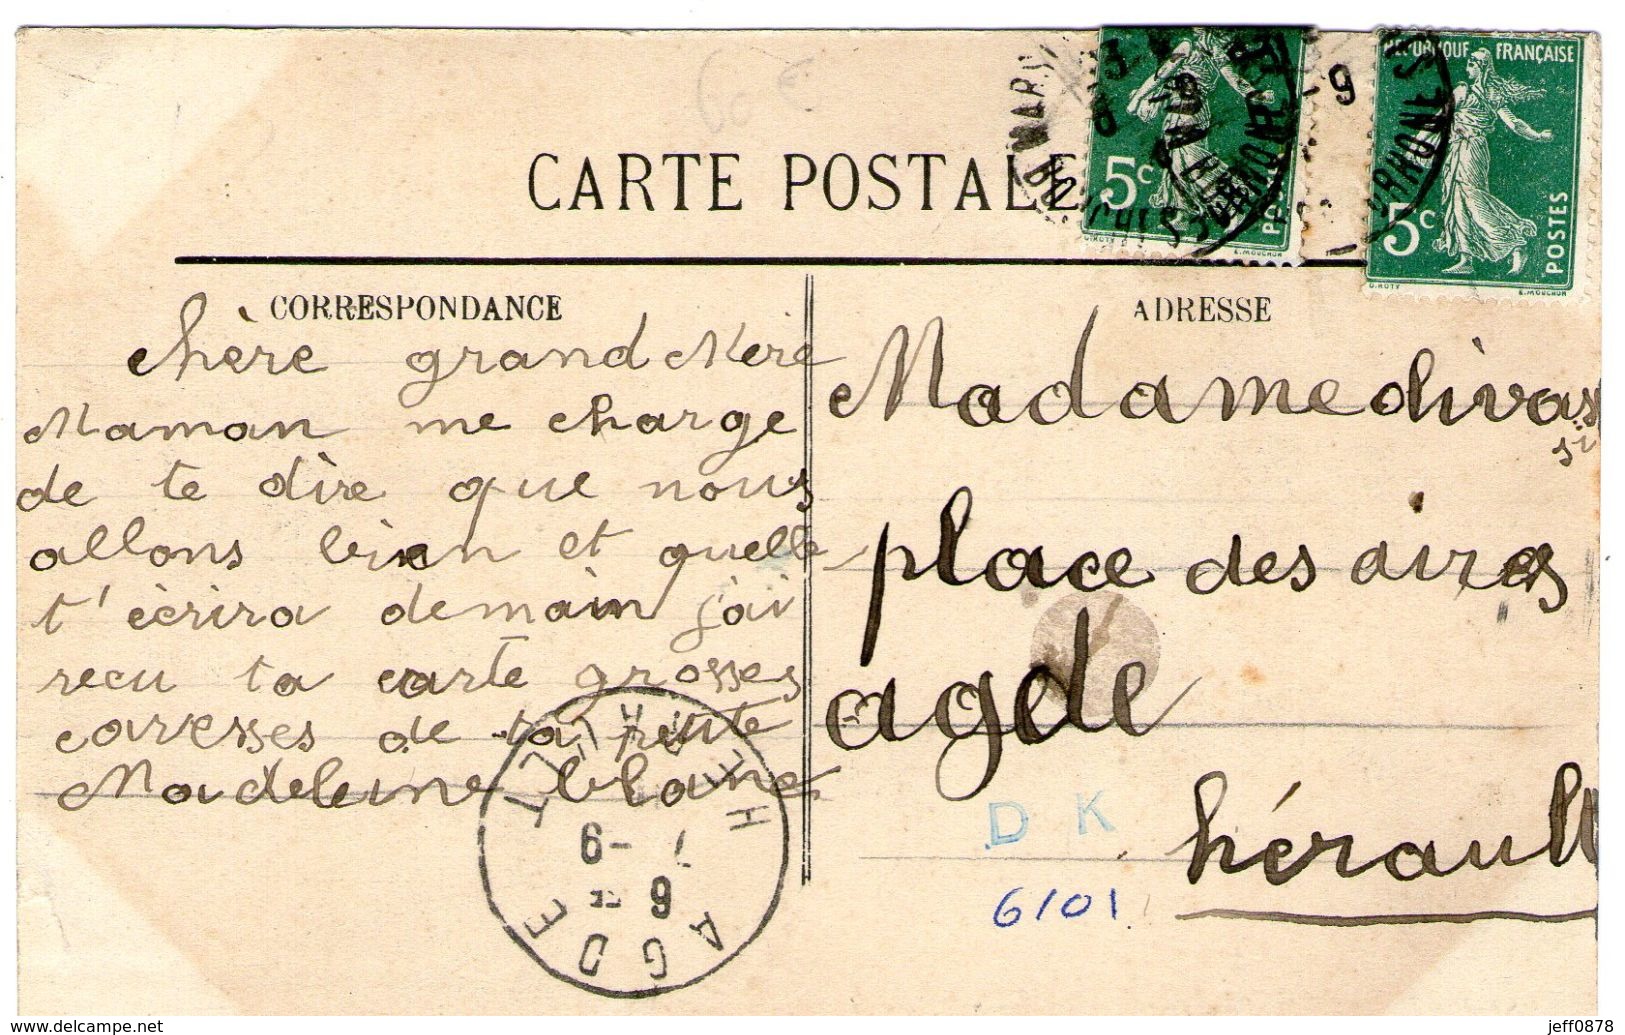 CARTE POSTALE
RÉPUBLIQUE FRANÇAISE
5c
5c
POSTES
CORRESPONDANCE
ADRESSE
chère grand Mère
Maman me charge
de te dire que nous
allons bien et quelle
t'écrira demain j'ai
recu ta carte grosses
caresses de ta petite
Madeleine blanc
Madame divas
place des aires
agde
hérault
AGDE HERAULT
D K
6101
www.delcampe.net
jeff0878